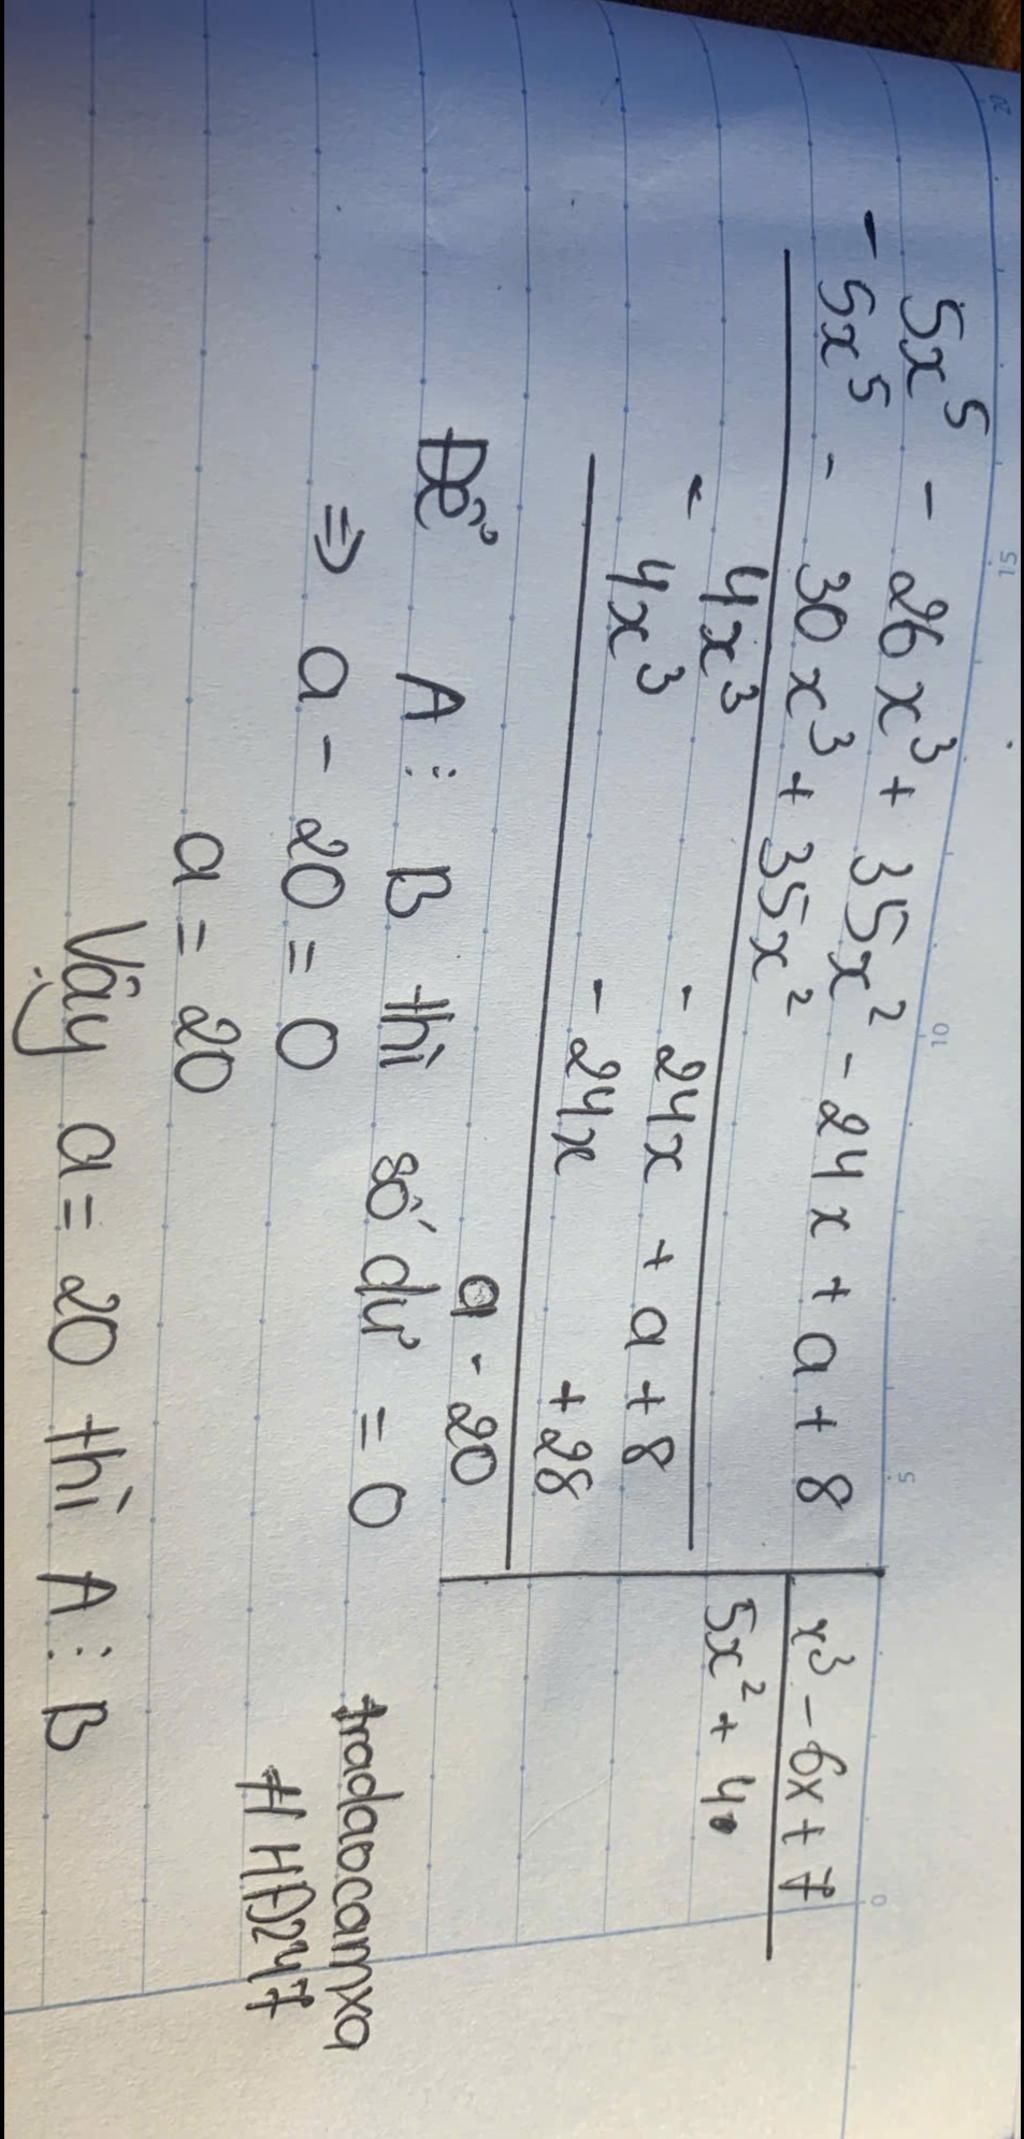 5x⁵ - 26x³ + 35x² - 24x + a + 8
x³ - 6x + 7
- 5x⁵ - 30x³ + 35x²
5x² + 4
- 4x³ - 24x + a + 8
4x³ - 24x + 28
a - 20
Để A ⋮ B thì số dư = 0
⇒ a - 20 = 0
a = 20
Vậy a = 20 thì A ⋮ B
tradaocamxa
#HĐ247
20
15
10
5
0